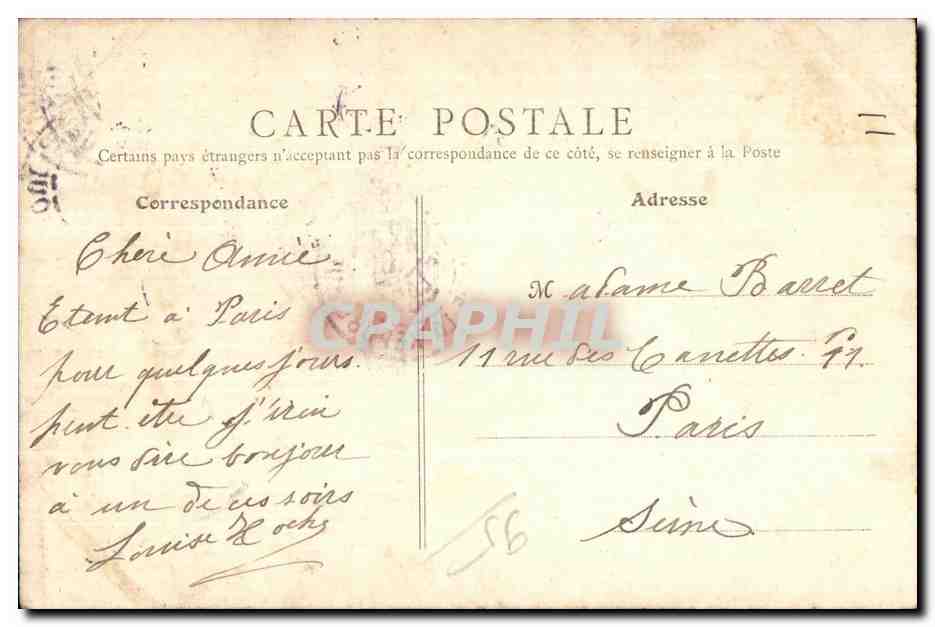 CARTE POSTALE
Certains pays étrangers n'acceptant pas la correspondance de ce côté, se renseigner à la Poste
Correspondance
Adresse
Chère Amie
Etant à Paris
pour quelques jours.
peut être j'irai
vous dire bonjour
à un de ces soirs
Louise
Madame Barret
11 rue des Canettes.
Paris
Seine
56
CPAPHIL